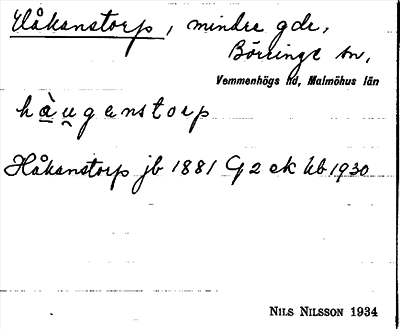 Håkanstorp, mindre gdr,
Börringe sn,
Vemmenhögs hd, Malmöhus län
hàu̯genstorp
Håkanstorp jb 1881 G2 ek kb 1930
NILS NILSSON 1934